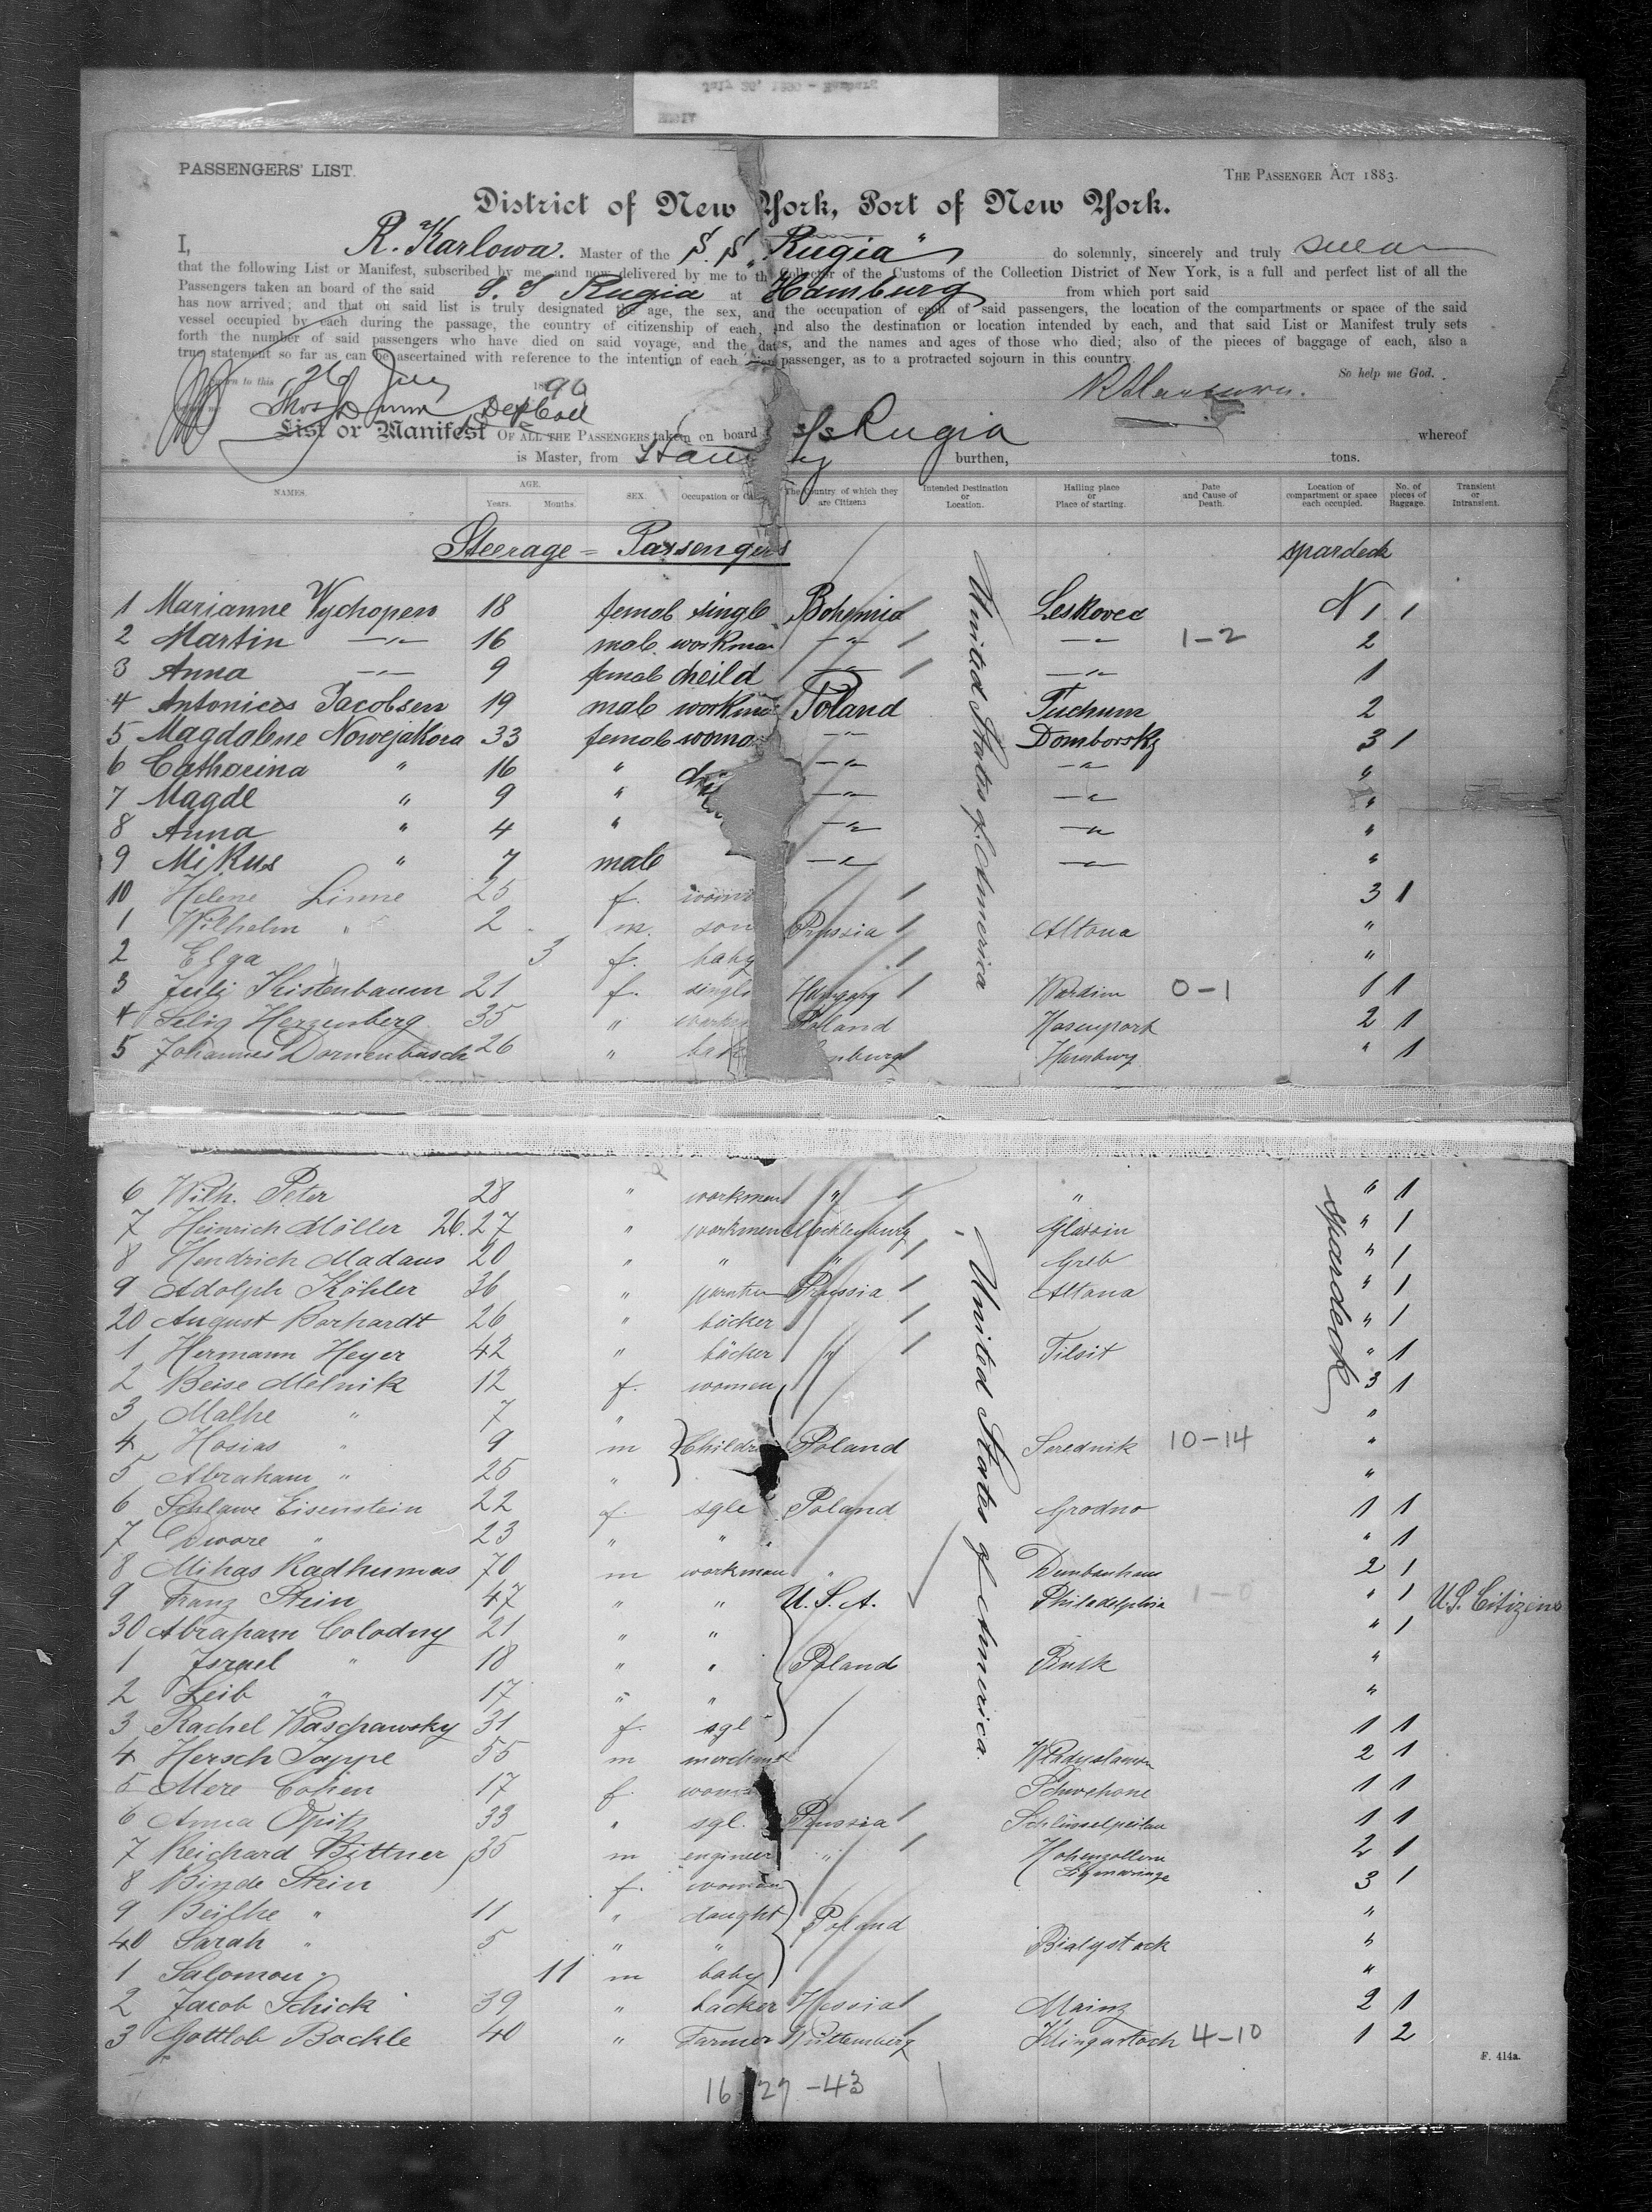 PASSENGERS' LIST.
THE PASSENGER ACT 1883.
District of New York, Port of New York.
I, R. Karlowa. Master of the S. S. „Rugia" do solemnly, sincerely and truly swear
that the following List or Manifest, subscribed by me and now delivered by me to the Collector of the Customs of the Collection District of New York, is a full and perfect list of all the
Passengers taken an board of the said S. S Rugia at Hamburg from which port said
has now arrived; and that on said list is truly designated the age, the sex, and the occupation of each of said passengers, the location of the compartments or space of the said
vessel occupied by each during the passage, the country of citizenship of each, and also the destination or location intended by each, and that said List or Manifest truly sets
forth the number of said passengers who have died on said voyage, and the dates, and the names and ages of those who died; also of the pieces of baggage of each, also a
true statement so far as can be ascertained with reference to the intention of each passenger, as to a protracted sojourn in this country.
So help me God.
to this 26 July 1890
Thos Dunn Dep Coll
List or Manifest OF ALL THE PASSENGERS taken on board s/s Rugia whereof
is Master, from burthen, tons.
NAMES. AGE. Years. Months. SEX. Occupation or The Country of which they are Citizens Intended Destination or Location. Hailing place or Place of starting. Date and Cause of Death. Location of compartment or space each occupied. No. of pieces of Baggage. Transient or Intransient.
Steerage = Passengers spardeck
United States of America
1 Marianne Wychopen 18 femal single Bohemia Leskovec N 1 1
2 Martin —"— 16 male workman —"— —"— 1-2 2
3 Anna —"— 9 female cheild —"— —"— 1
4 Antonices Jacobsen 19 male Poland Tuchum 2
5 Magdalene Nowejakora 33 female —"— Domborsky 3 1
6 Catharina " 16 " —"— —"— "
7 Magde " 9 " —"— —"— "
8 Anna " 4 " —"— —"— "
9 Mikus " 7 male —"— —"— "
10 Helene Linne 25 f. 3 1
1 Wilhelm " 2 m. son Prussia Altona "
2 Elga " 3 f. baby "
3 Julj Kistenbaum 21 f. single Hungary Wardim 0-1 1 1
4 Selig Herzenberg 35 " Poland Hasenport 2 1
5 Johannes Dornenbusch 26 " Hamburg " 1
6 Wilh. Peter 28 " workman " " " 1
7 Heinrich Möller 26. 27 " workman Mecklenburg Glassin " 1
8 Hendrich Madaus 20 " " " Greb " 1
9 Adolph Köhler 36 " Prussia Altona " 1
20 August Borhardt 26 " bäcker " 1
1 Hermann Heyer 42 " bäcker " Tilsit " 1
2 Beise Melnik 12 f. women 3 1
3 Malhe " 7 " "
4 Hosias " 9 m Children Poland Serednik 10-14 "
5 Abraham " 25 " "
6 Schlawe Eisenstein 22 f. sgle Poland Grodno 1 1
7 Dwore " 23 " " " " 1
8 Mihas Radhumas 70 m workman " 2 1
9 Franz Stein 47 " " U.S.A. Philadelphia 1-0 " 1 U.S. Citizens
30 Abraham Colodny 21 " " " 1
1 Israel " 18 " " Poland Pinsk "
2 Leib " 17 " " "
3 Rachel Waschawsky 31 f. sgl 1 1
4 Hersch Jappe 55 m merchant 2 1
5 Mere Cohen 17 f. woman 1 1
6 Anna Opitz 33 " sgl. Prussia Schlüsselpeilau 1 1
7 Reichard Bittner 35 m engineer " Hohenzollern 2 1
8 Binde Stein f. woman 3 1
9 Beilhe " 11 " daught Poland "
40 Sarah " 5 " " Bialystock "
1 Salomon " 11 m baby "
2 Jacob Schick 39 " backer Hessia Mainz 2 1
3 Gottlob Bockle 40 " Farmer Württemberg 4-10 1 2
United States of America.
spardeck
F. 414a.
16 27 -43